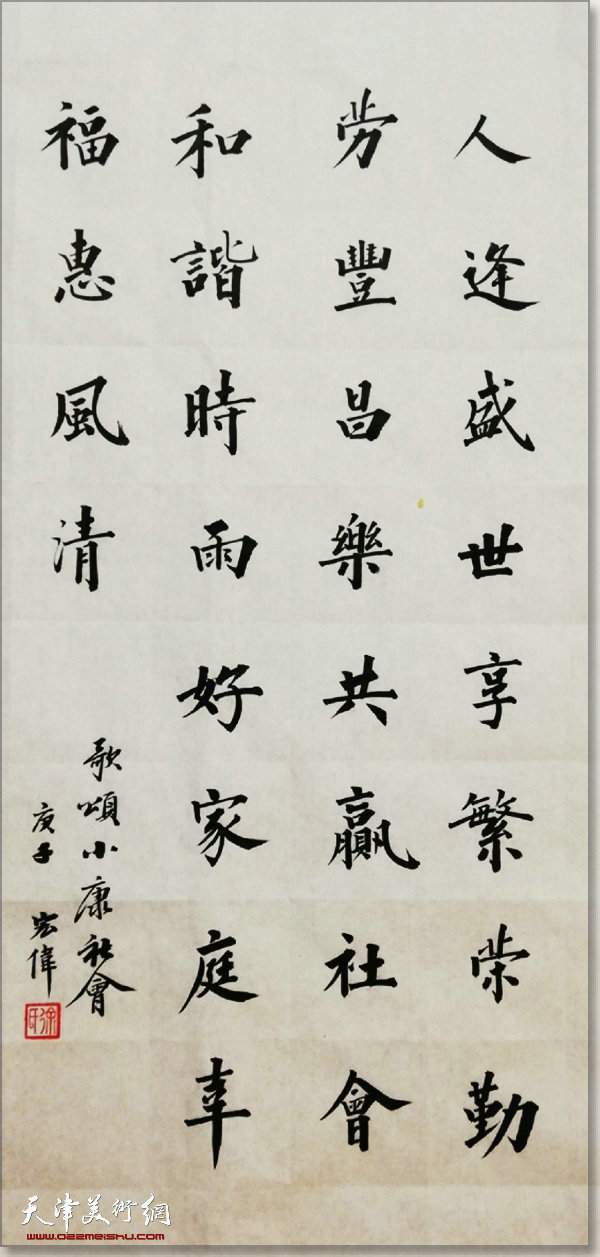 人逢盛世享繁荣勤
劳豐昌樂共贏社會
和諧時雨好家庭幸
福惠風清
歌頌小康社會
庚子 宏偉
天津美術網
www.022meishu.com